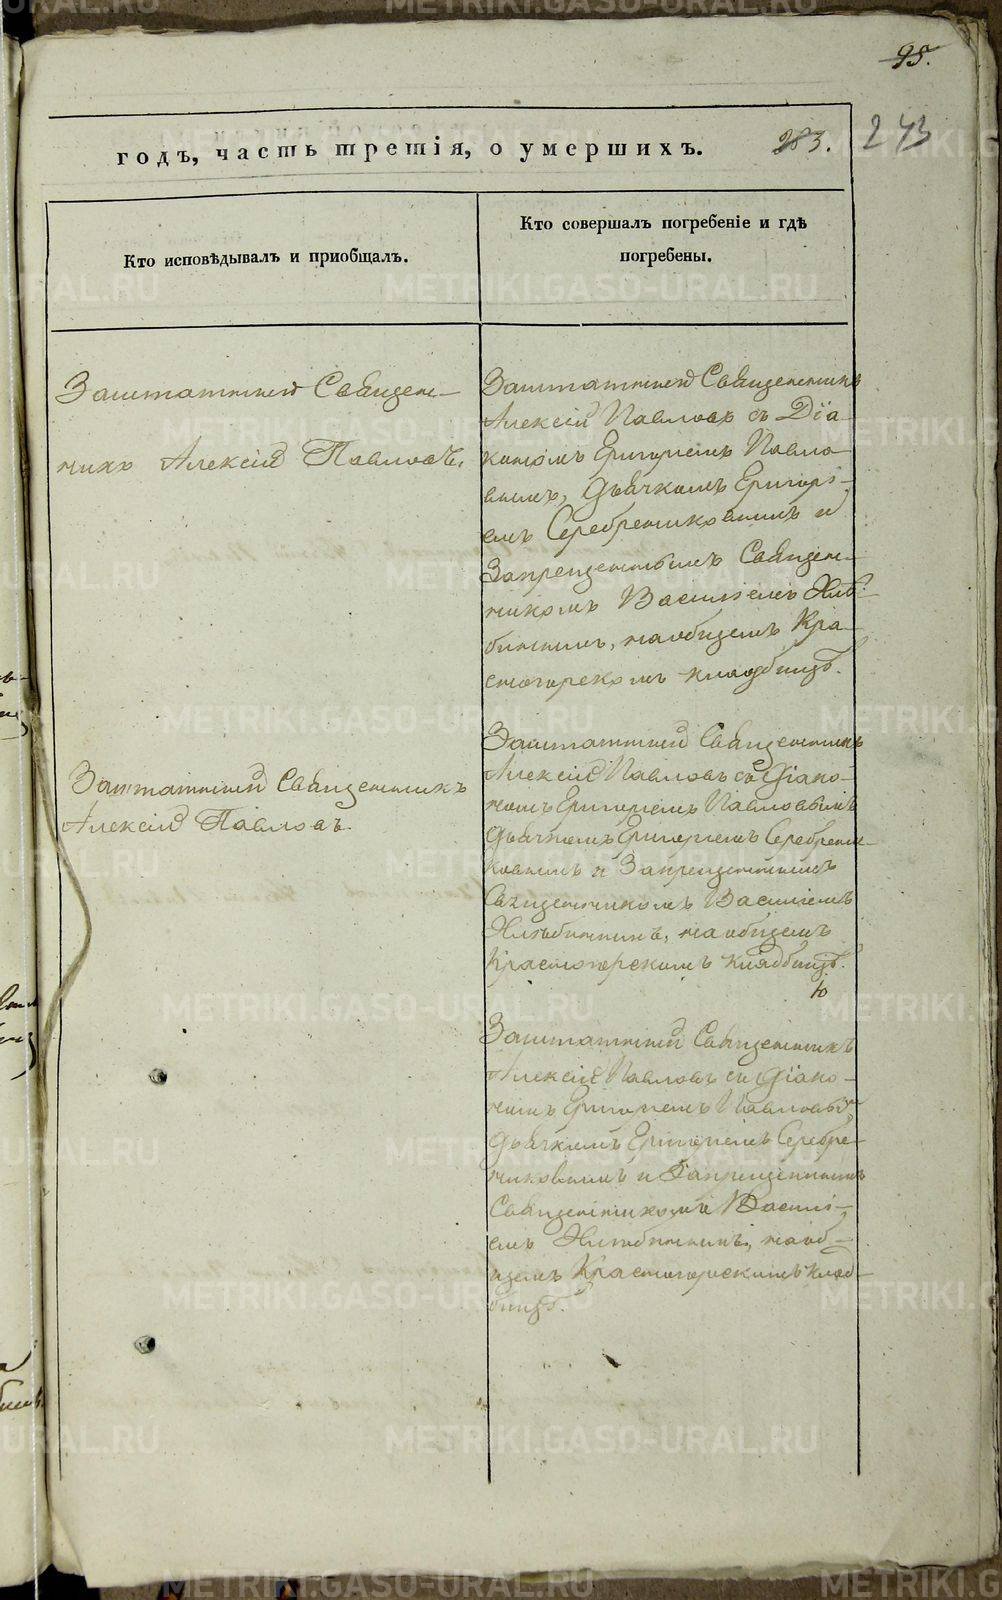 95.
243
283.
годъ, часть третія, о умершихъ.
Кто исповѣдывалъ и пріобщалъ.
Кто совершалъ погребеніе и гдѣ
погребены.
Заштатный Священ-
никъ Алексій Павловъ.
Заштатный Священникъ
Алексій Павловъ съ Діа-
кономъ Григоріемъ Павло-
вымъ, Дьячкомъ Григорі-
емъ Серебрениковымъ и
Запрещеннымъ Священ-
никомъ Василіемъ
на общемъ Кра-
сногорскомъ кладбищѣ.
Заштатный Священникъ
Алексій Павловъ.
Заштатный Священникъ
Алексій Павловъ съ Діако-
номъ Григоріемъ Павловымъ
Дьячкомъ Григоріемъ Серебрени-
ковымъ и Запрещеннымъ
Священникомъ Василіемъ
на общемъ
Красногорскомъ кладбищѣ.
Заштатный Священникъ
Алексій Павловъ съ Діако-
номъ Григоріемъ Павловы
Дьячкомъ Григоріемъ Серебре-
никовымъ и Запрещеннымъ
Священникомъ Василі-
емъ на об-
щемъ Красногорскомъ клад-
бищѣ.
METRIKI.GASO-URAL.RU